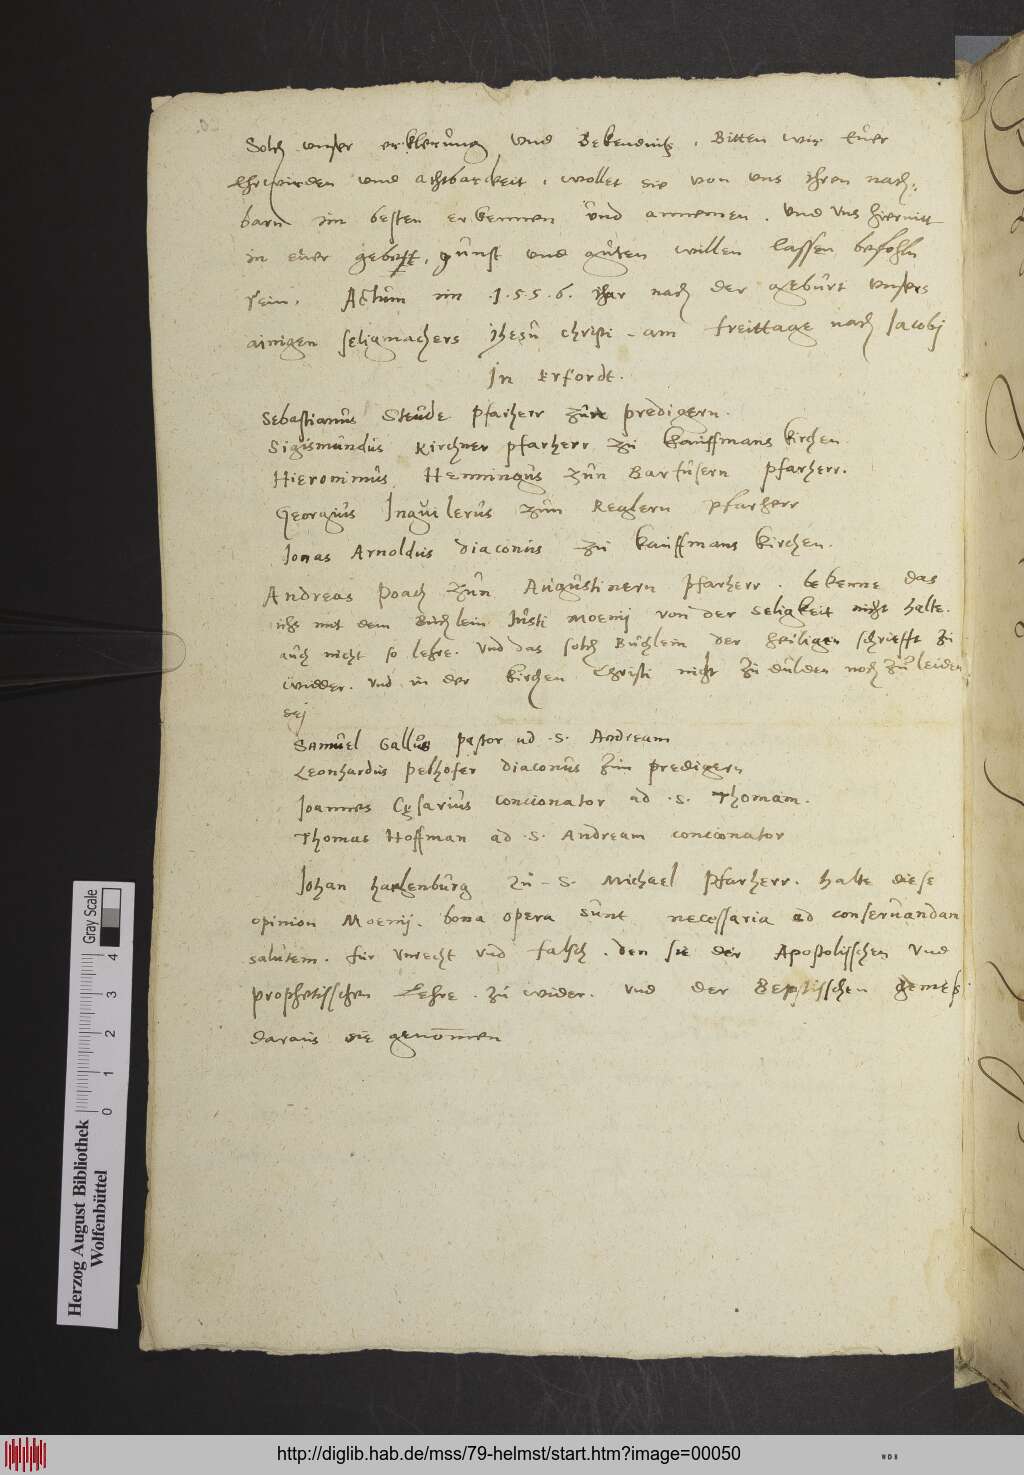 Solch unser erklerung und Bekendnis, Bitten wir Euer
Ehrwirden und achtbarkeit, wollet sie von uns ihren nach-
barn im besten erkennen und annemen. und uns hiermitt
in euer gebett, gunst und guten willen lassen befohln
sein. Actum im .1.5.5.6. ihar nach der geburt unsers
ainigen seligmachers ihesu christi - am freittage nach Jacobj
In Erfordt.
Sebastianus Steude pfarherr zun predigern.
Sigismundus Kirchner pfarherr zu kauffmans kirchen.
Hieronimus Henningus zun Barfusern pfarherr.
Georgius zum Reglern pfarherr
Jonas Arnoldus diaconus zu kauffmans kirchen.
Andreas Poach zun Augustinern pfarherr. bekenne das
ichs mit dem Buchlein Justi Moenij von der seligkeit nicht halte.
auch nicht so lehre. und das solch Buchlein der heiligen schriefft zu
widder. und in der kirchen Christi nicht zu dulden noch zu leiden
sej
Samuel Gallus pastor ad .S. Andream
Leonhardus Pelhofer diaconus zun predigern
Joannes Cęsarius concionator ad .S. Thomam.
Thomas Hoffman ad .S. Andream concionator
Johan zu - S. Michael pfarherr. halte diese
opinion Moenij. bona opera sunt necessaria ad conseruandam
salutem. für unrecht und falsch. den sie der Apostolisschen und
prophetisschen Lehre. zu wider. und der Bepstisschen gemes
daraus sie genomen
Gray Scale
4
3
2
1
0
Herzog August Bibliothek
Wolfenbüttel
http://diglib.hab.de/mss/79-helmst/start.htm?image=00050